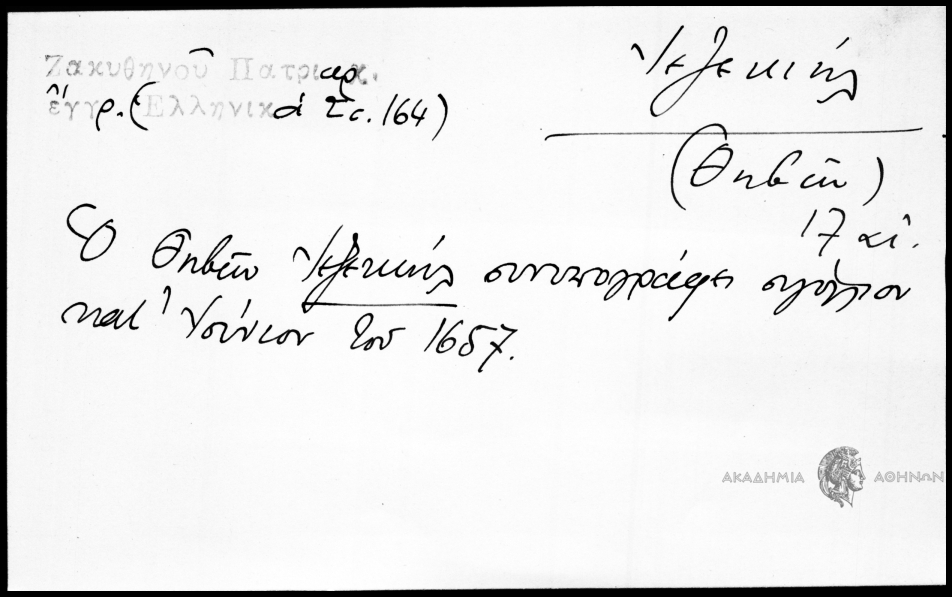 Ζακυθηνοῦ Πατριαρχ.
ἔγγρ. (Ἑλληνικά 2 σ. 164)
Ἰεζεκιήλ
(Θηβῶν)
17 αἰ.
Ὁ Θηβῶν Ἰεζεκιήλ συνυπογράφει σιγίλλιον
κατ' Ἰούνιον τοῦ 1657.
ΑΚΑΔΗΜΙΑ ΑΘΗΝΩΝ